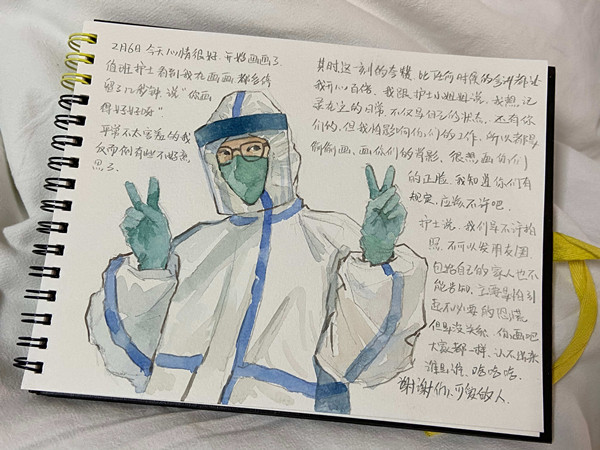 2月6日 今天心情很好，开始画画了。
值班护士看到我在画画，都多停
留了几秒钟，说“你画
得好好呀”
平常不太害羞的我
反而倒有些不好意
思了。
其时这一刻的夸赞，比任何时候的夸讲都让
我开心百倍。我跟护士小姐姐说，我想记
录在这的日常，不仅写自己的状态，还有你
们的，但我怕影响你们的工作，所以都是
偷偷画，画你们的背影，很想画你们
的正脸，我知道你们有
规定，应该不许吧。
护士说，我们是不许拍
照，不可以发朋友圈
包括自己的家人也不
能告知，主要是怕引
起不必要的恐慌。
但是没关系，你画吧
大家都一样，认不出来
谁是谁，哈哈哈。
谢谢你们，可爱的人。